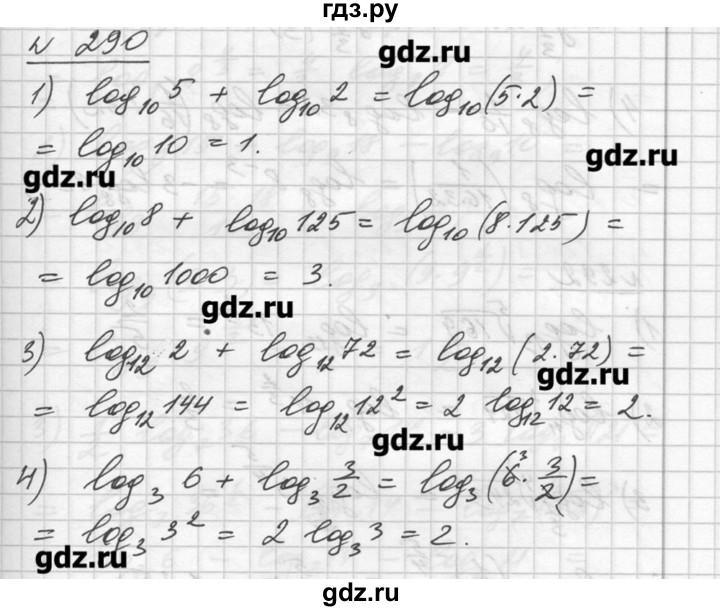 гдз.ру
№ 290
gdz.ru
1) log₁₀ 5 + log₁₀ 2 = log₁₀ (5·2) =
= log₁₀ 10 = 1.
gdz.ru
gdz.ru
2) log₁₀ 8 + log₁₀ 125 = log₁₀ (8·125) =
= log₁₀ 1000 = 3.
gdz.ru
3) log₁₂ 2 + log₁₂ 72 = log₁₂ (2·72) =
gdz.ru
= log₁₂ 144 = log₁₂ 12² = 2 log₁₂ 12 = 2.
gdz.ru
4) log₃ 6 + log₃ 3/2 = log₃ (6³ · 3/2) =
= log₃ 3² = 2 log₃ 3 = 2.
gdz.ru
gdz.ru